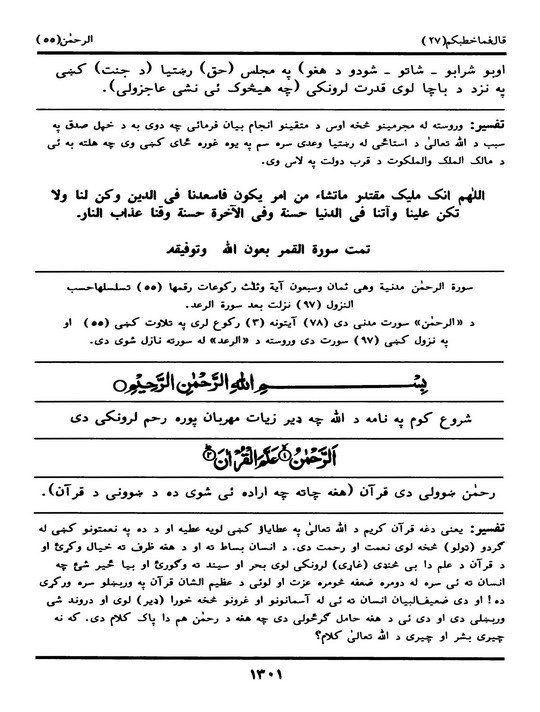 قال فماخطبكم (٢٧) الرحمٰن (٥٥)
اوبو شرابو ـ شاتو ـ شودو د هغو) په مجلس (حق) رښتيا (د جنت) کښې
په نزد د باچا لوی قدرت لرونکي (چه هيڅوک ئې نشي عاجزولی).
تفسير: وروسته له مجرمينو څخه اوس د متقينو انجام بيان فرمائي چه دوی به د خپل صدق په
سبب د الله تعالیٰ د استاځي له رښتيا وعدې سره سم په يوه غوره ځای کښې وي چه هلته به ئې
د مالک الملک والملکوت د قرب دولت په لاس وي.
اللهم انک مليک مقتدر ماتشاء من امر يکون فاسعدنا في الدين وکن لنا ولا
تکن علينا وآتنا في الدنيا حسنة وفي الآخرة حسنة وقنا عذاب النار.
تمت سورة القمر بعون الله وتوفيقه
سورة الرحمٰن مدنية وهي ثمان وسبعون آية وثلث رکوعات رقمها (٥٥) تسلسلهاحسب
النزول (٩٧) نزلت بعد سورة الرعد.
د «الرحمٰن» سورت مدني دی (٧٨) آيتونه (٣) رکوع لري په تلاوت کښې (٥٥) او
په نزول کښې (٩٧) سورت دی وروسته د «الرعد» له سورته نازل شوی دی.
بِسْمِ اللهِ الرَّحْمٰنِ الرَّحِيْمِ
شروع کوم په نامه د الله چه ډير زيات مهربان پوره رحم لرونکی دی
اَلرَّحْمٰنُ ﴿١﴾ عَلَّمَ الْقُرْاٰنَ ﴿٢﴾
رحمٰن ښوولی دی قرآن (هغه چاته چه اراده ئې شوی ده د ښوونې د قرآن).
تفسير: يعنې دغه قرآن کريم د الله تعالیٰ په عطاياؤ کښې لويه عطيه او د ده په نعمتونو کښې له
ګردو (ټولو) څخه لوی نعمت او رحمت دی. د انسان بساط ته او د هغه ظرف ته خيال وکړئ او
د قرآن د علم دا بې څنډې (غاړې) لرونکی لوی بحر او سيند ته وګورئ او بيا ځير شئ چه
انسان ته ئې سره له دومره ضعفه څومره عزت او لوئي د عظيم الشان قرآن په وربښلو سره ورکړی
ده! او دی ضعيف‌البيان انسان ته ئې له آسمانونو او غرونو څخه خورا (ډير) لوی او دروند شی
وربښلی دی او دی ئې د هغه حامل ګرځولی دی چه هغه د رحمٰن هم دا پاک کلام دی. که نه
چيرې بشر او چيرې د الله تعالیٰ کلام؟
١٣٠١